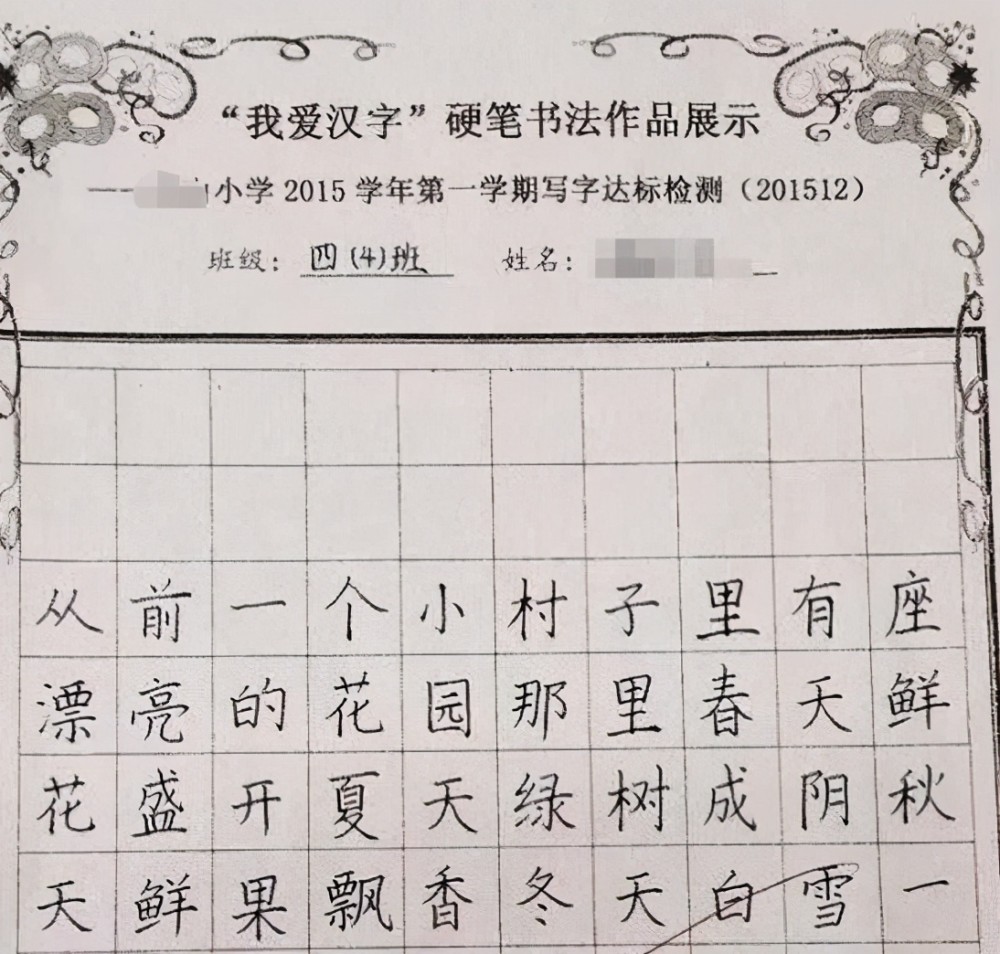 “我爱汉字”硬笔书法作品展示
小学2015学年第一学期写字达标检测（201512）
班级：四(4)班 姓名：
从前一个小村子里有座
漂亮的花园那里春天鲜
花盛开夏天绿树成阴秋
天鲜果飘香冬天白雪一